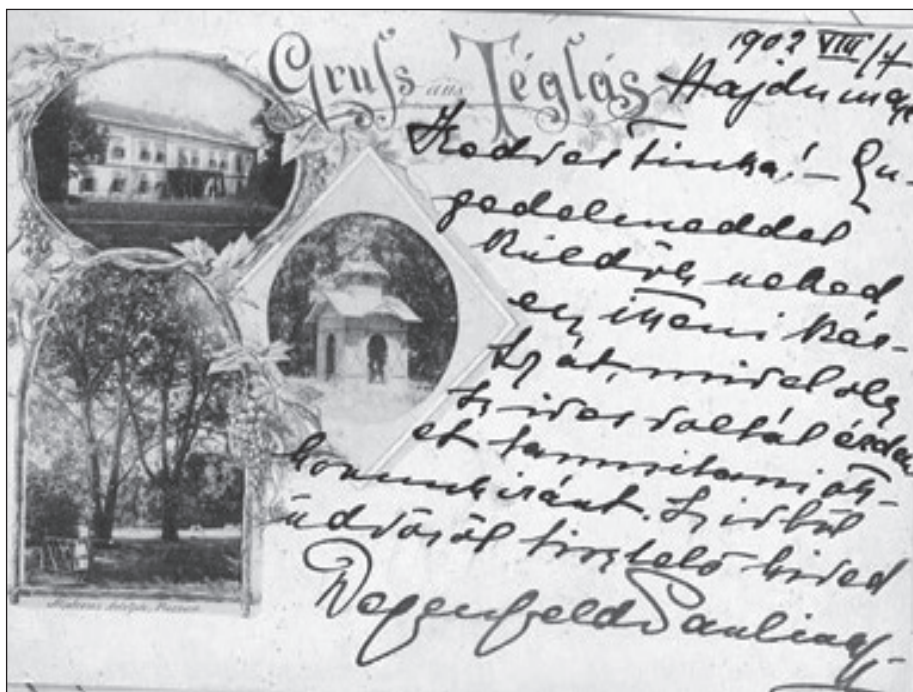 Gruss aus Téglás
1902 VIII/7
Hajdu
Kedves Tinka! – En-
gedelmeddel
küldök neked
egy itteni kár-
tyát, mivel oly
szives voltál érdek
et tanusitani ott-
honunk iránt. Szivből
üdvözöl tisztelő hived
Degenfeld Paulina